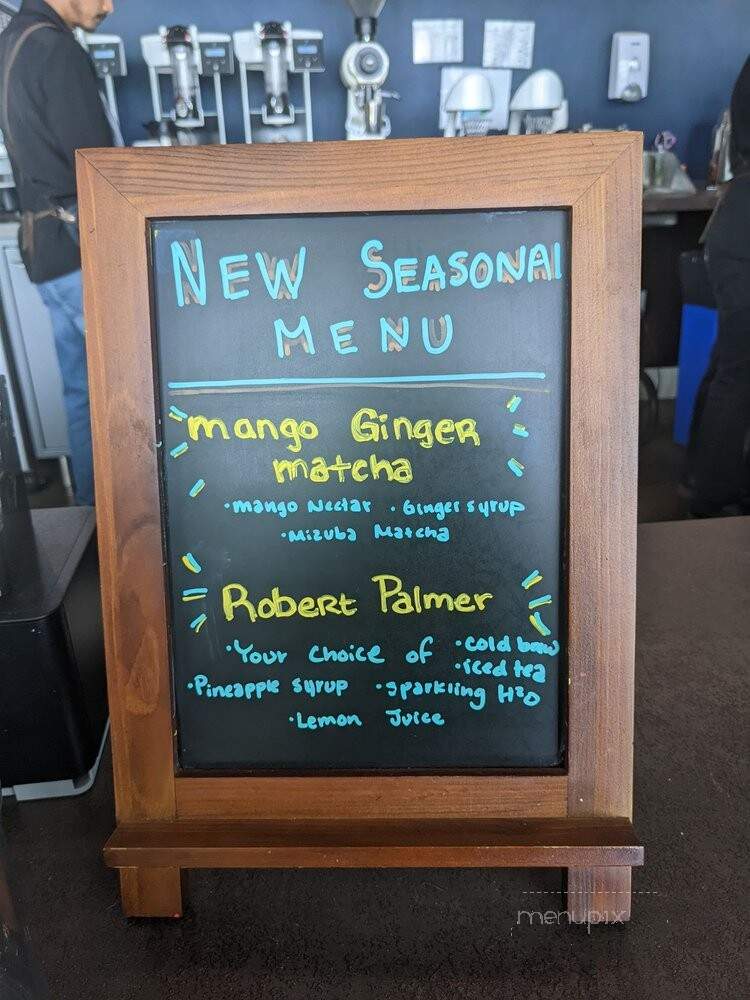 NEW SEASONAl
MENU
mango Ginger
matcha
·mango Nectar ·Ginger syrup
·Mizuba Matcha
Robert Palmer
·Your choice of ·cold brew
·iced tea
·Pineapple syrup ·sparkling H2O
·Lemon Juice
menupix